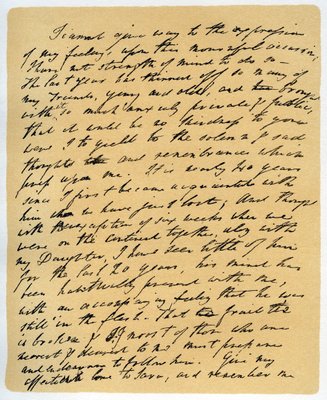 I cannot give way to the expression
of my feelings upon this mournful occasion;
I have not strength of mind to do so —
The last year has thinned off so many of
my Friends, young and old, and brought
with it so much anxiety private & public,
that it would be no kindness to you
were I to yield to the solemn & sad
thoughts and remembrances which
press upon me. It is nearly 40 years
since I first became acquainted with
him whom we have just lost; and though
with the exception of six weeks when we
were on the continent together, along with
my Daughter, I have seen little of him
for the last 20 years, his mind has
been habitually present with me,
with an accompanying feeling that he was
still in the flesh. That frail tie
is broken & I, & most of those who are
nearest & dearest to me must prepare
and endeavour to follow him. Give my
affectionate love to Sara, and remember me